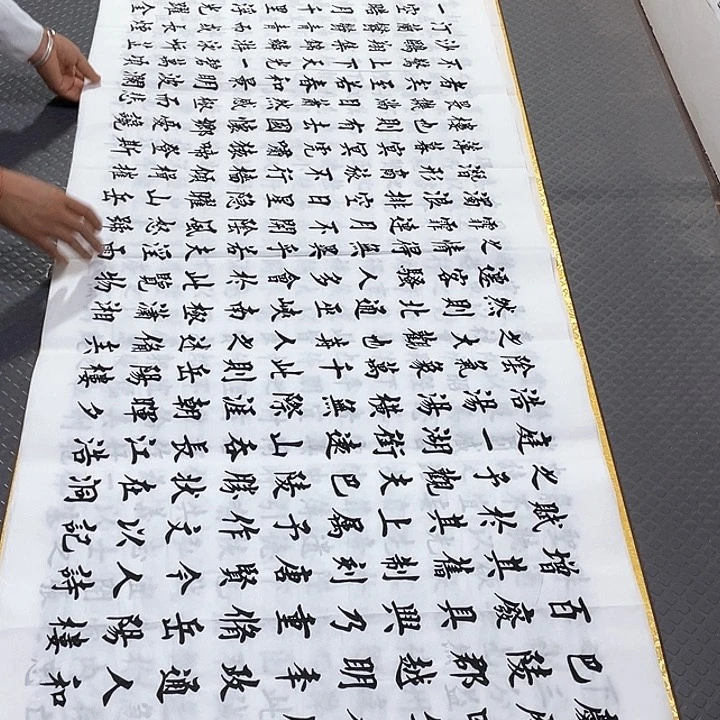 巴陵郡越明年政通人和
百廢具興乃重脩岳陽樓
增其舊制刻唐賢今人詩
賦於其上屬予作文以記
之予觀夫巴陵勝狀在洞
庭一湖銜遠山吞長江浩
浩湯湯橫無際涯朝暉夕
陰氣象萬千此則岳陽樓
之大觀也前人之述備矣
然則北通巫峽南極瀟湘
遷客騷人多會於此覽物
之情得無異乎若夫淫雨
霏霏連月不開陰風怒號
濁浪排空日星隱曜山岳
潛形商旅不行檣傾楫摧
薄暮冥冥虎嘯猿啼登斯
樓也則有去國懷鄉憂讒
畏譏滿目蕭然感極而悲
者矣至若春和景明波瀾
不驚上下天光一碧萬頃
沙鷗翔集錦鱗游泳岸芷
汀蘭郁郁青青而或長煙